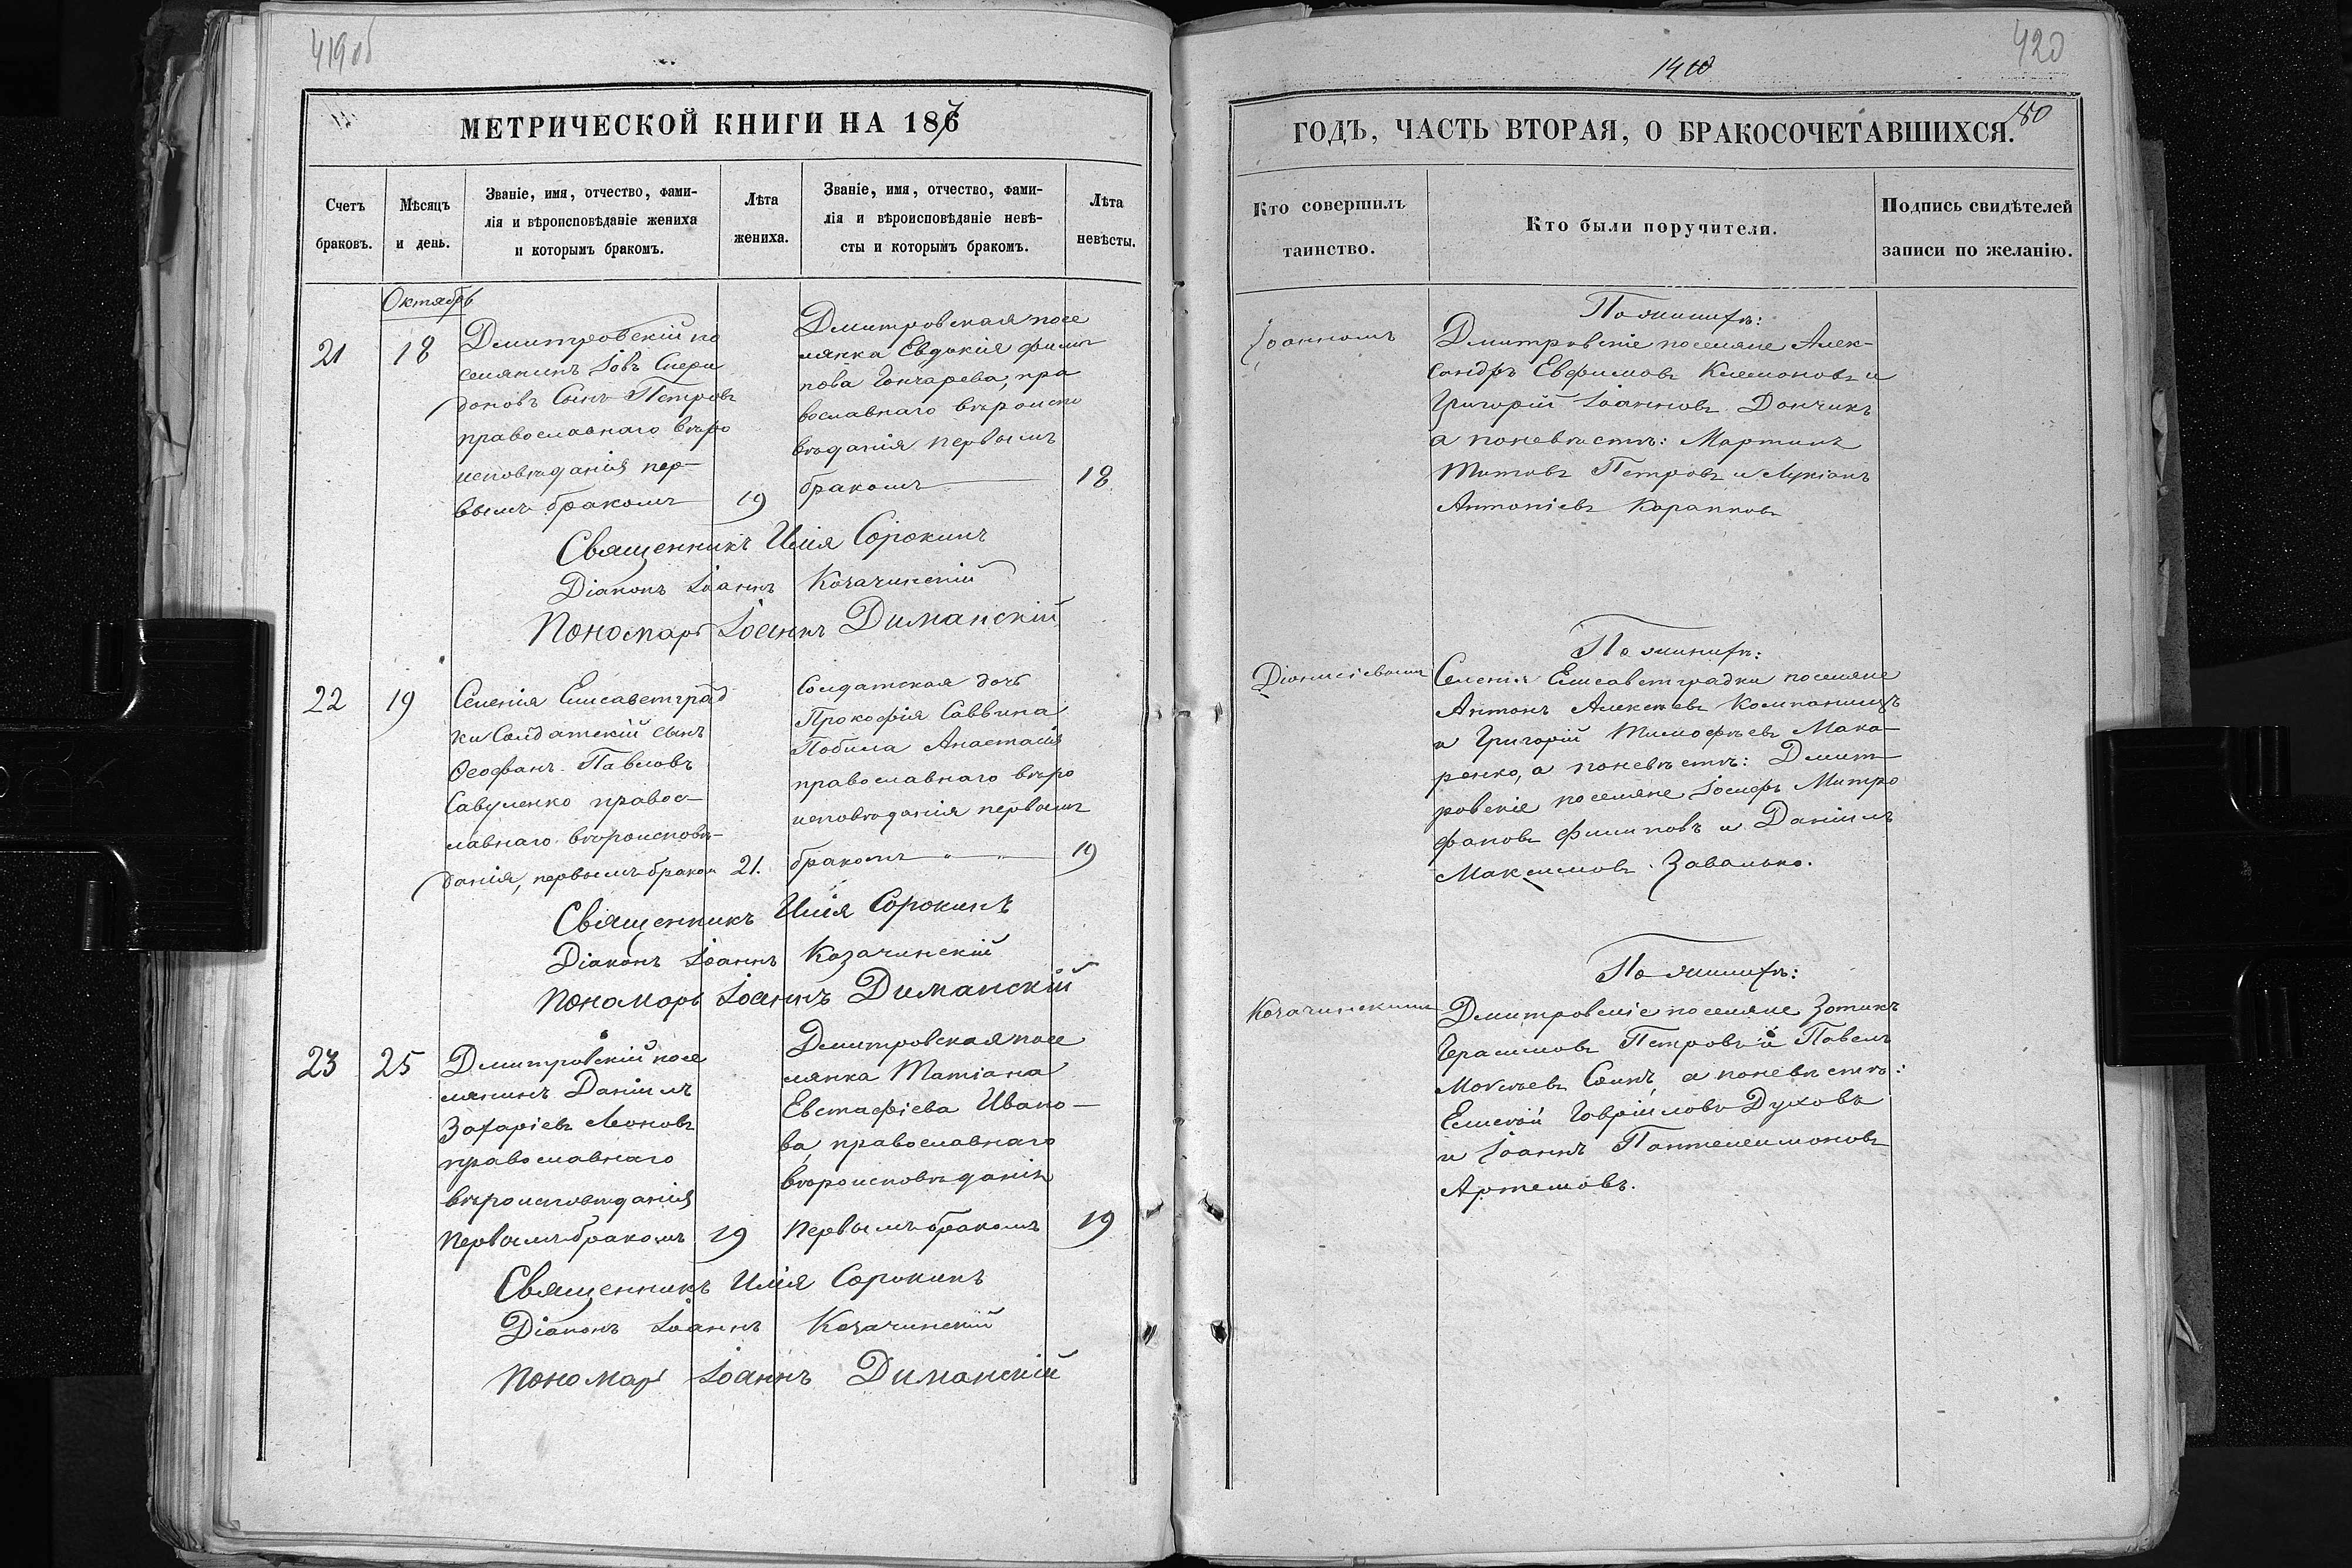 419об
МЕТРИЧЕСКОЙ КНИГИ НА 187
Счетъ браковъ.
Мѣсяцъ и день.
Званіе, имя, отчество, фами-
лія и вѣроисповѣданіе жениха
и которымъ бракомъ.
Лѣта жениха.
Званіе, имя, отчество, фами-
лія и вѣроисповѣданіе невѣ-
сты и которымъ бракомъ.
Лѣта невѣсты.
Октябрь
21
18
Дмитровскій по
селянинъ Іовъ Спери
доновъ Сынъ Петровъ
православнаго вѣро
исповѣданія пер-
вымъ бракомъ
19
Дмитровская посе
лянка Евдокія Филип
пова Гончарева, пра
вославнаго вѣроиспо
вѣданія первымъ
бракомъ
18
Священникъ Илія Сорокинъ
Діаконъ Іоаннъ Козачинскій
Пономарь Іоаннъ Диманскій
22
19
Селенія Елисаветград
ки Солдатскій сынъ
Ѳеофанъ Павловъ
Савуленко правос-
лавнаго вѣроисповѣ-
данія, первымъ браком
21.
Солдатская дочь
Прокофія Саввина
Побила Анастасія
православнаго вѣро
исповѣданія первымъ
бракомъ
19
Священникъ Илія Сорокинъ
Діаконъ Іоаннъ Козачинскій
Пономарь Іоаннъ Диманскій
23
25
Дмитровскій посе
лянинъ Даніилъ
Захаріевъ Леоновъ
православнаго
вѣроисповѣданія
первымъ бракомъ
19
Дмитровская посе
лянка Татіана
Евстафіева Ивано-
ва, православнаго
вѣроисповѣданія
первымъ бракомъ
19
Священникъ Илія Сорокинъ
Діаконъ Іоаннъ Козачинскій
Пономарь Іоаннъ Диманскій
420
80
ГОДЪ, ЧАСТЬ ВТОРАЯ, О БРАКОСОЧЕТАВШИХСЯ.
Кто совершилъ
таинство.
Кто были поручители.
Подпись свидѣтелей
записи по желанію.
Іоанномъ
По женихѣ:
Дмитровскіе поселяне Алек-
сандръ Евфимовъ Климоновъ и
Григорій Іоанновъ Дончикъ
а по невѣстѣ: Мартинъ
Титовъ Петровъ и Лукіанъ
Антоніевъ Караповъ
Діонисіевымъ
По женихѣ:
Селенія Елисаветградки поселяне
Антонъ Алексѣевъ Компаниецъ
и Григорій Тимофѣевъ Мака-
ренко, а по невѣстѣ: Дмит-
ровскіе поселяне Іосифъ Митро
фановъ Филиповъ и Даніилъ
Максимовъ Завалько.
Козачинскимъ
По женихѣ:
Дмитровскіе поселяне Зотикъ
Герасимовъ Петровъ и Павелъ
Моисѣевъ а по невѣстѣ:
Елисей Гавріиловъ Духовъ
и Іоаннъ Пантелеимоновъ
Артемовъ.